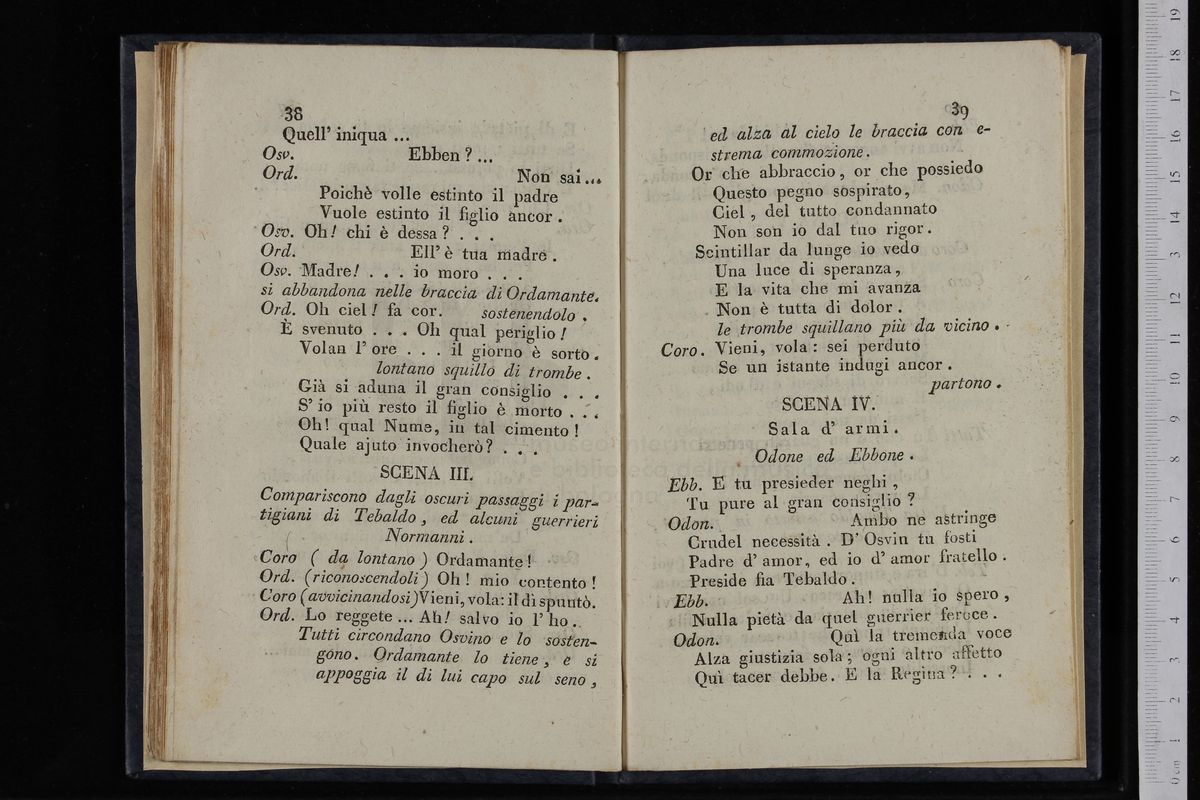 38
Quell' iniqua ...
Osv. Ebben ? ...
Ord. Non sai ...
Poichè volle estinto il padre
Vuole estinto il figlio ancor .
Osv. Oh! chi è dessa ? . . .
Ord. Ell' è tua madre .
Osv. Madre! . . . io moro . . .
si abbandona nelle braccia di Ordamante.
Ord. Oh ciel ! fa cor. sostenendolo .
È svenuto . . . Oh qual periglio !
Volan l' ore . . . il giorno è sorto .
lontano squillo di trombe .
Già si aduna il gran consiglio . . .
S' io più resto il figlio è morto . . .
Oh! qual Nume, in tal cimento !
Quale ajuto invocherò ? . . .
SCENA III.
Compariscono dagli oscuri passaggi i par-
tigiani di Tebaldo , ed alcuni guerrieri
Normanni .
Coro ( da lontano ) Ordamante !
Ord. (riconoscendoli ) Oh ! mio contento !
Coro (avvicinandosi)Vieni, vola: il dì spuntò.
Ord. Lo reggete ... Ah! salvo io l' ho .
Tutti circondano Osvino e lo sosten-
gono. Ordamante lo tiene , e si
appoggia il di lui capo sul seno ,
39
ed alza al cielo le braccia con e-
strema commozione .
Or che abbraccio , or che possiedo
Questo pegno sospirato ,
Ciel , del tutto condannato
Non son io dal tuo rigor .
Scintillar da lunge io vedo
Una luce di speranza ,
E la vita che mi avanza
Non è tutta di dolor .
le trombe squillano più da vicino .
Coro . Vieni, vola : sei perduto
Se un istante indugi ancor .
partono .
SCENA IV.
Sala d' armi .
Odone ed Ebbone .
Ebb. E tu presieder neghi ,
Tu pure al gran consiglio ?
Odon. Ambo ne astringe
Crudel necessità . D' Osvin tu fosti
Padre d' amor, ed io d' amor fratello .
Preside fia Tebaldo .
Ebb. Ah! nulla io spero ,
Nulla pietà da quel guerrier feroce .
Odon. Quì la tremenda voce
Alza giustizia sola ; ogni altro affetto
Quì tacer debbe . E la Regina ? . . .